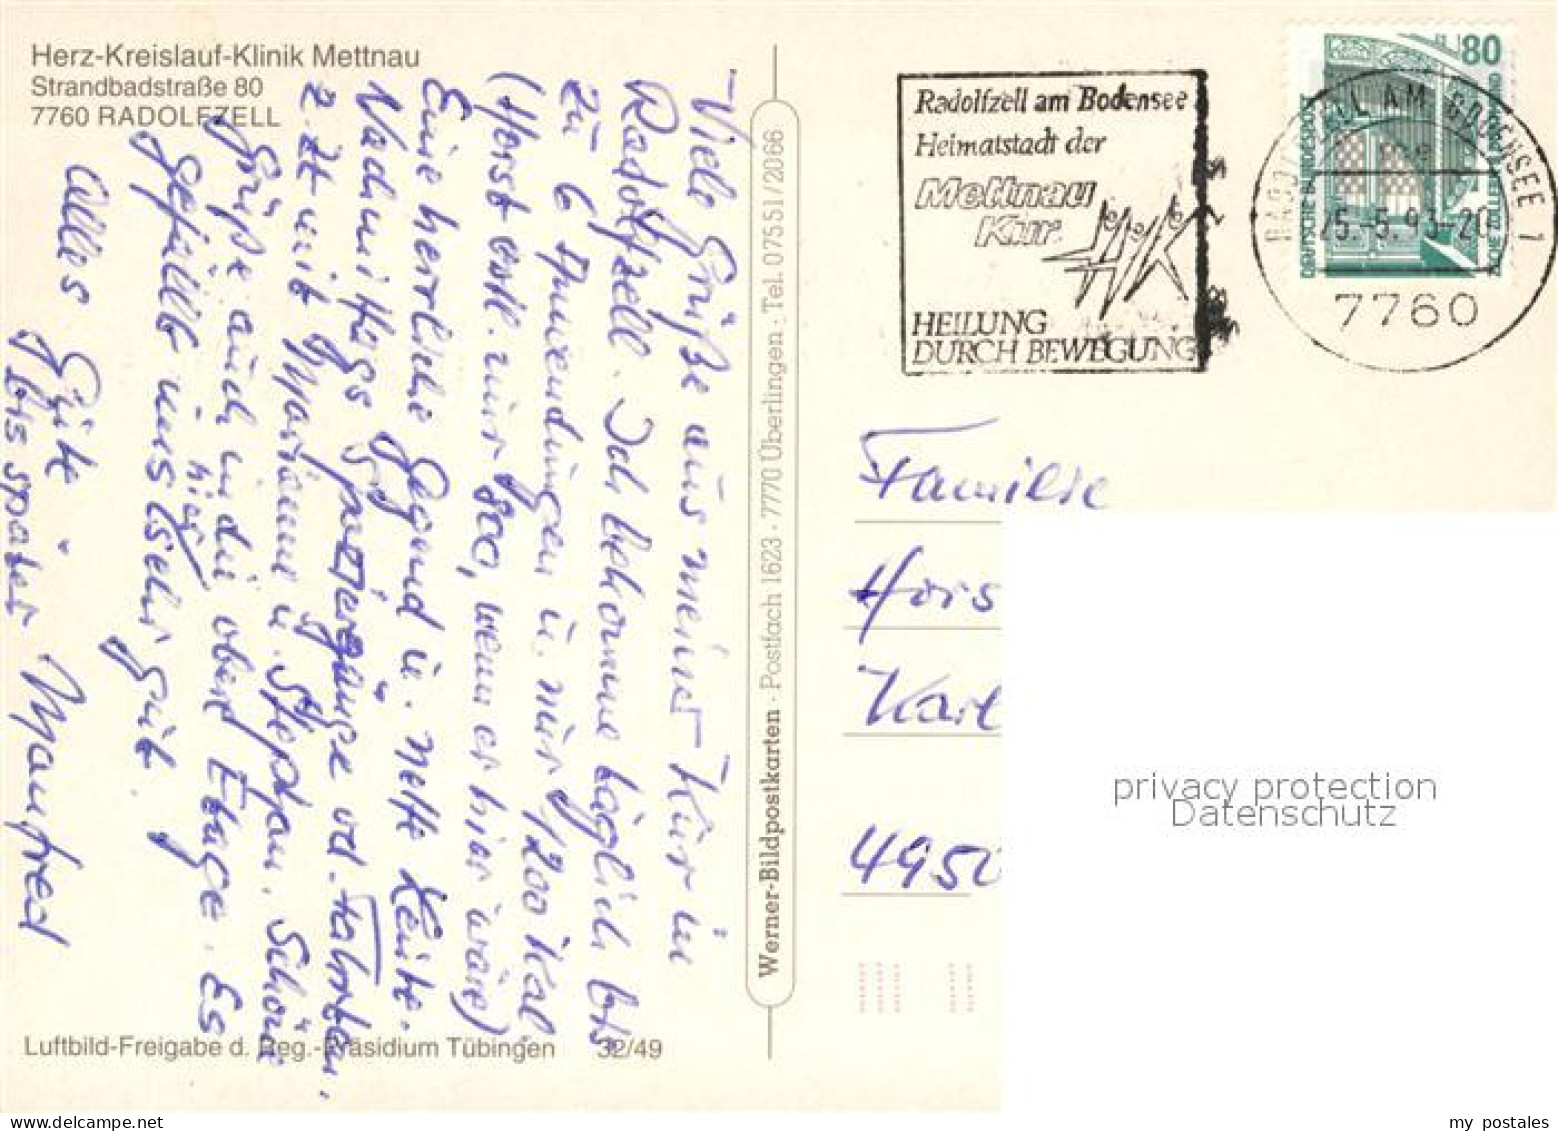 Herz-Kreislauf-Klinik Mettnau
Strandbadstraße 80
7760 RADOLFZELL
Viele Grüße aus meiner Kur in
Radolfzell. Ich bekomme täglich bis
zu 6 Anwendungen u. nur 1200 Kal.
(Horst erh. nur 800, wenn er hier wäre)
Eine herrliche Gegend u. nette Leute.
Nachmittags Spaziergänge od. Fahrten,
z. Zt mit Marianne u. Stephan. Schöne
Grüße auch in die obere Etage. Es
gefällt uns hier sehr gut.
Alles Gute
bis später Manfred
Luftbild-Freigabe d. Reg.-Präsidium Tübingen 32/49
Werner-Bildpostkarten · Postfach 1623 · 7770 Überlingen · Tel. 07551/2066
Radolfzell am Bodensee
Heimatstadt der
Mettnau
Kur
HEILUNG
DURCH BEWEGUNG
80
DEUTSCHE BUNDESPOST
ZECHE ZOLLERN II DORTMUND
RADOLFZELL AM BODENSEE 1
25.-5.93-20
7760
Familie
Hors
Karl
4950
privacy protection
Datenschutz
my postales